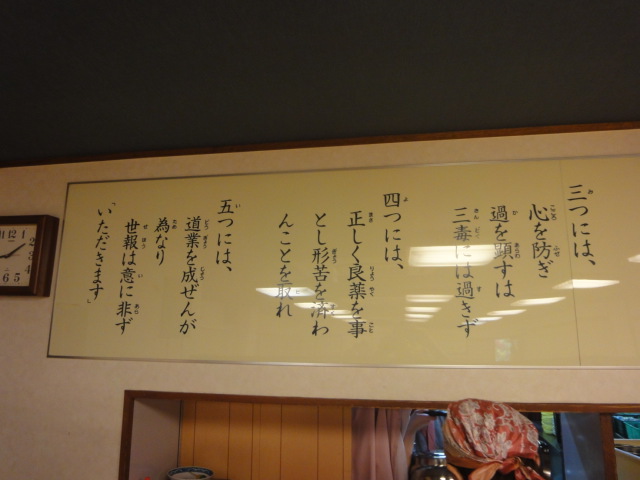 三つには、
心を防ぎ
過を顕すは
三毒には過きず
四つには、
正しく良薬を事
とし形苦を済わ
んことを取れ
五つには、
道業を成ぜんが
為なり
世報は意に非ず
「いただきます」